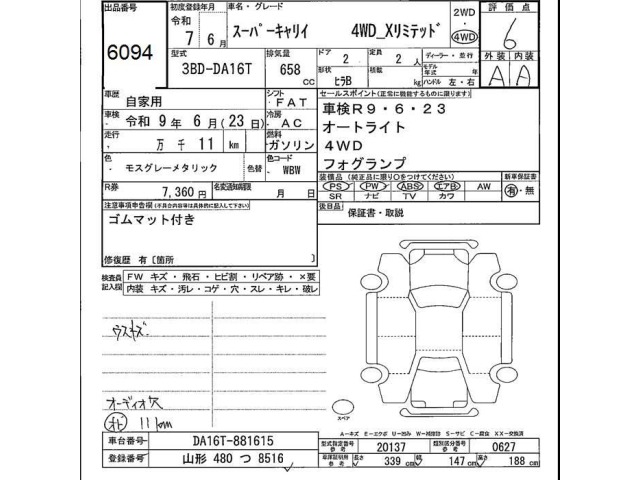 出品番号 初度登録年月 車名・グレード 2WD ・ 4WD 評価点
6094 令和 7年 6月 スーパーキャリイ 4WD_Xリミテッド 6
型式 3BD-DA16T 排気量 658 CC ドア 2 定員 2人 ディーラー・並行 外装 内装
形状 ヒラB 積載 kg モデル年式 年 ハンドル 左・右 A A
車歴 自家用 シフト FAT セールスポイント(正常に機能するものに限ります)
車検 令和 9年 6月(23日) 冷房 AC 車検R9・6・23
走行 万 千 11 km 燃料 ガソリン オートライト
色 モスグレーメタリック 色替 色コード WBW 4WD
フォグランプ
R券 7,360円 名変通知期限 月 日 装備品(純正品に限り〇をつけてください) 新車保証書
PS PW ABS エアB AW 有・無
SR ナビ TV カワ
注意事項申告欄(不具合内容等は具体的に記入して下さい) 後日品 保証書・取説
ゴムマット付き
修復歴 有〔箇所 〕
検査員記入欄 FW キズ・飛石・ヒビ割・リペア跡・×要
内装 キズ・汚レ・コゲ・穴・スレ・キレ・破レ
ウスキズ
オーディオ欠
11km
スペア
A−キズ E−エクボ U−凹み W−補修跡 S−サビ C−腐食 XX−交換済
車台番号 DA16T-881615 型式指定番号 参考 20137 類別区分番号 参考 0627
登録番号 山形 480 つ 8516 車庫証明用 参考 長さ 339 cm 幅 147 cm 高さ 188 cm